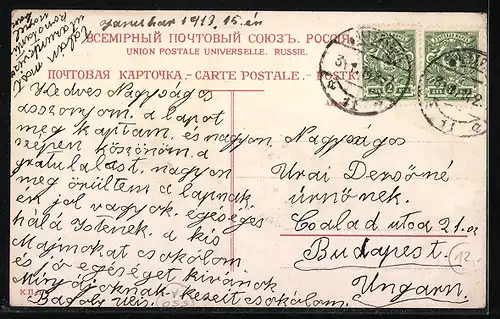 Januhar 1913. 15.én
ВСЕМІРНЫЙ ПОЧТОВЫЙ СОЮЗЪ. РОССІЯ.
UNION POSTALE UNIVERSELLE. RUSSIE.
ПОЧТОВАЯ КАРТОЧКА. - CARTE POSTALE. - POSTK
Kedves Nagyságos
asszonyom, a lapot
meg kaptam, és nagyon
szépen köszönöm a
gratulalást, nagyon
meg örültem a lapnak
én jol vagyok, egeségés
hálá Istenek. a kis
Majmokat csokolom
és jó egeséget kivánok
Minyájoknak. kezeit csokolom.
Nagyságos
Urai Dersőné
úrnőnek.
Csalad utca 21.a
Budapest.
Ungarn.
12.